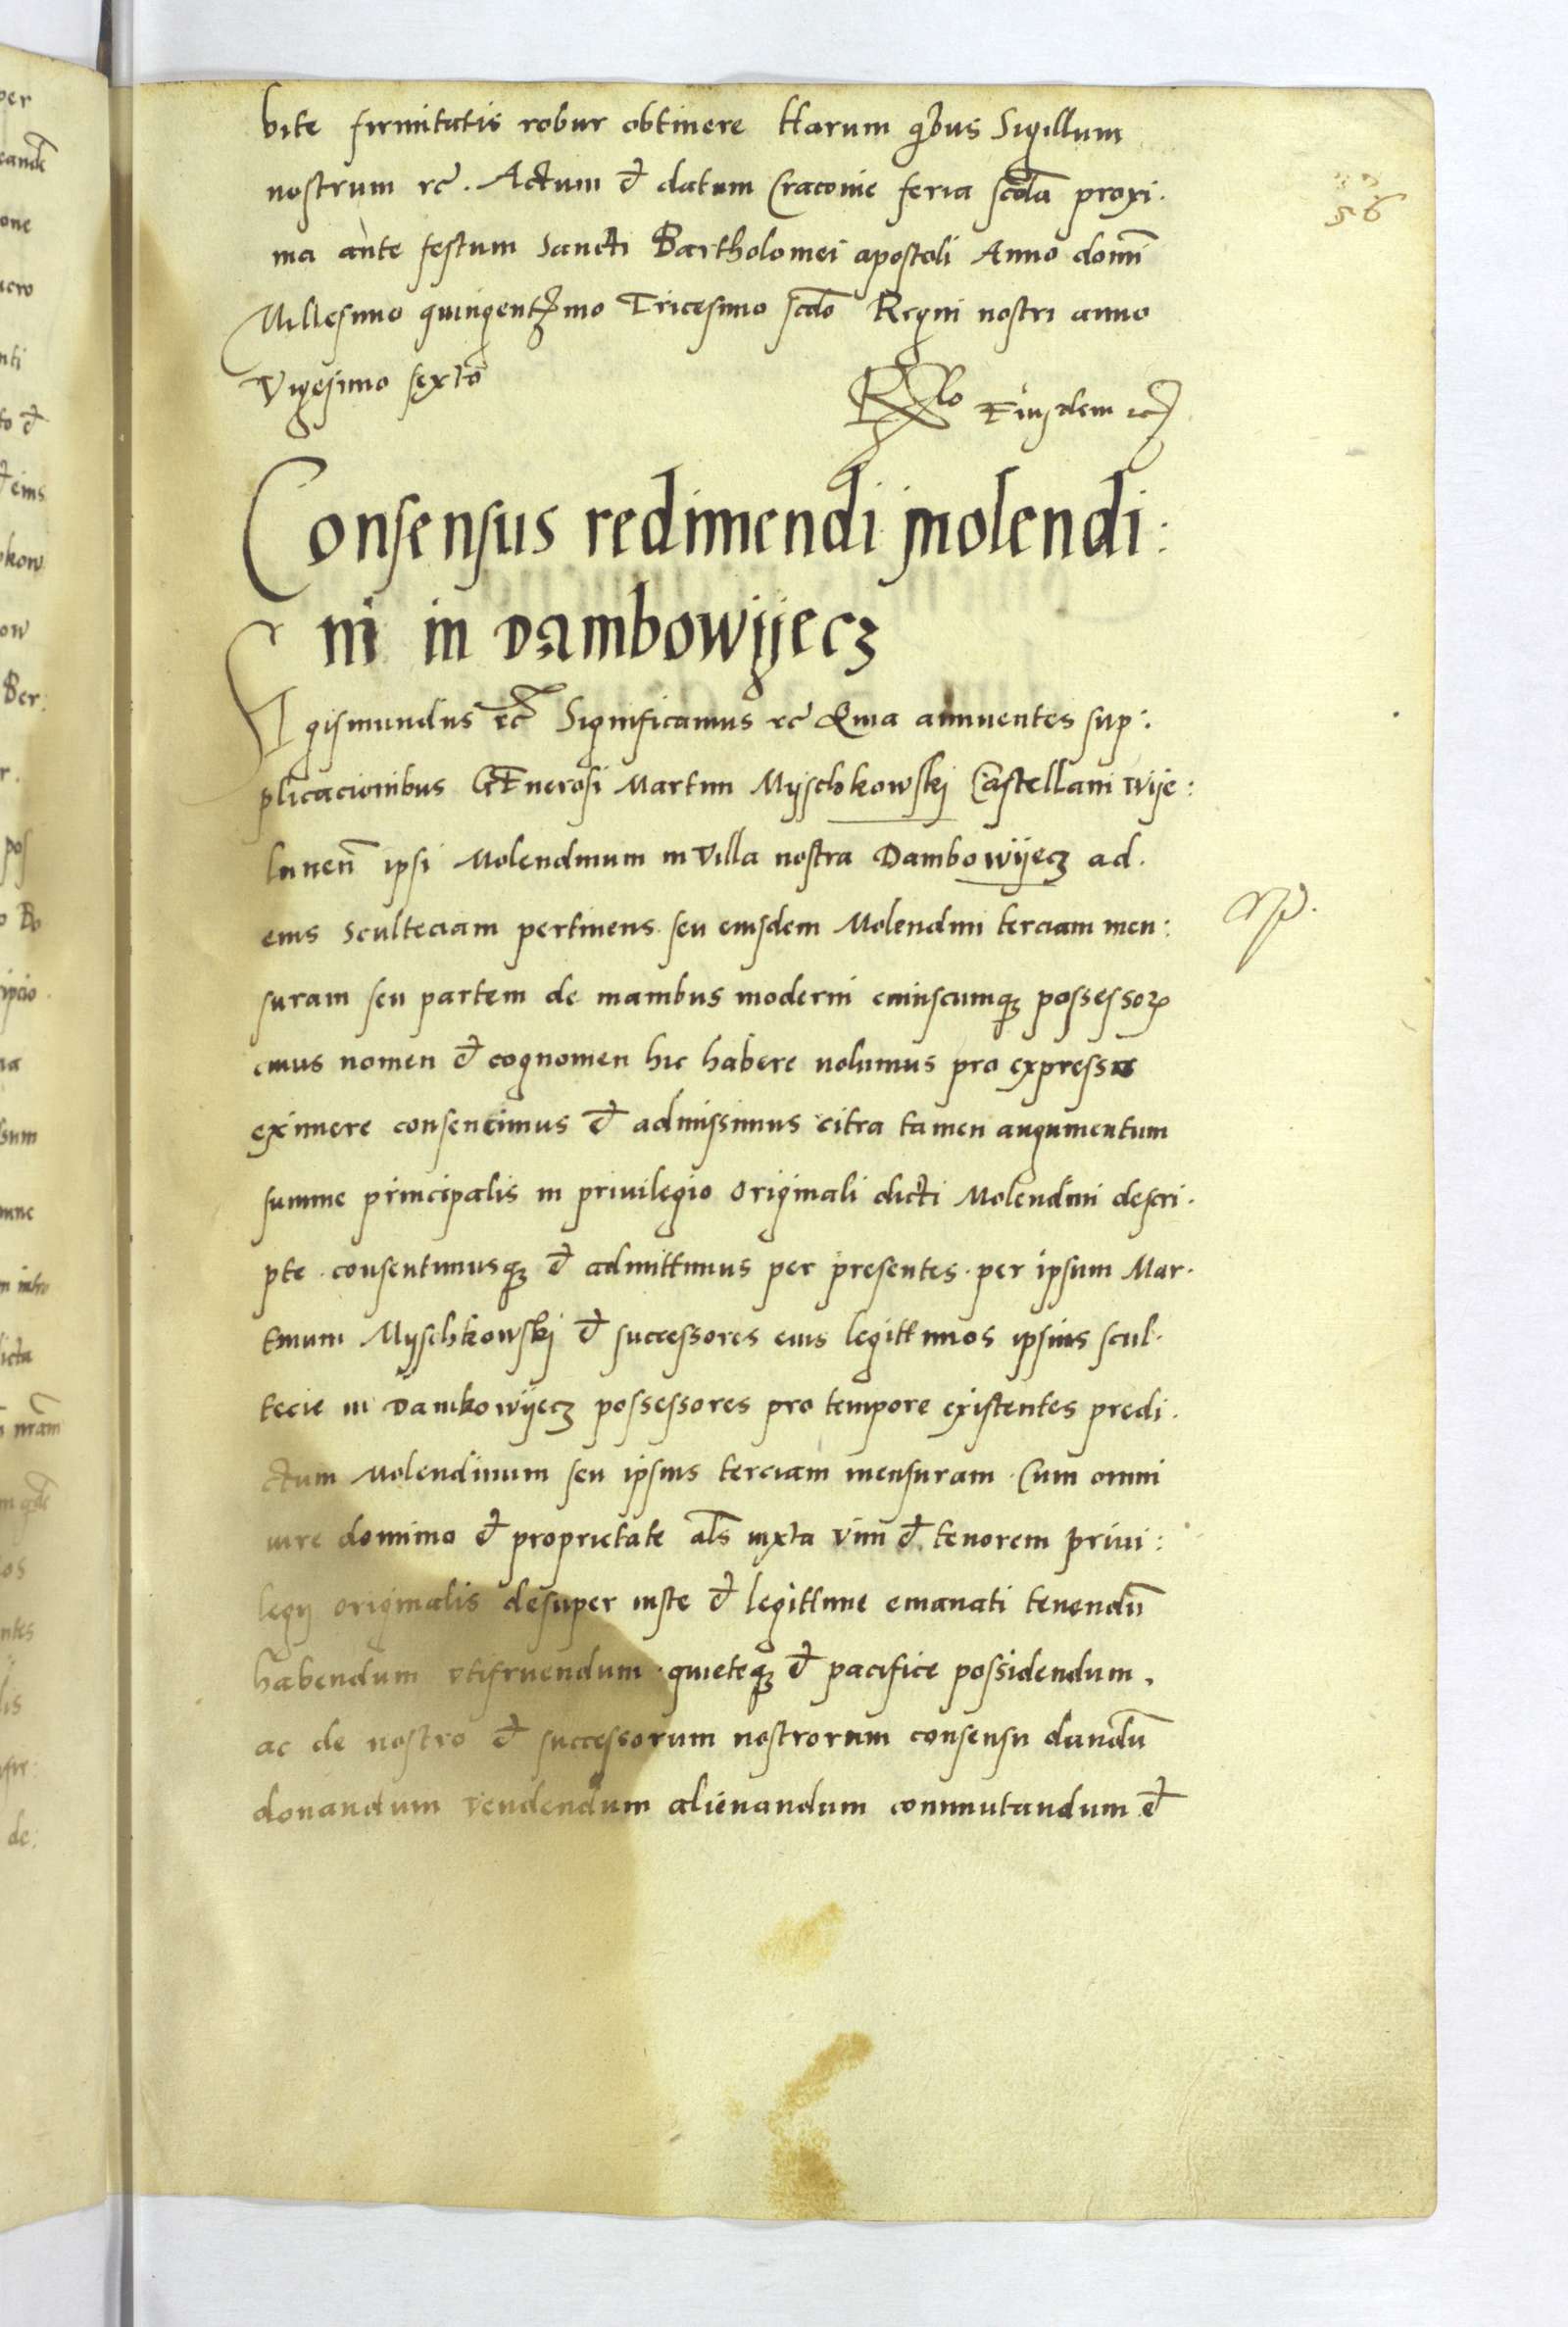 bite firmitatis robur obtinere Harum qibus Sigillum
nostrum rc̃. Actum et datum Cracovie feria scda proxi.
ma ante festum Sancti Bartholomei apostoli Anno domi
Millesimo quingentmo Tricesimo scdo Regni nostri anno
Vigesimo sexto
Rlo Eiusdem rc
56
Consensus redimendi molendi:
ni in Dambowyecz
Sigismundus rc Significamus rc Quia annuentes sup:
plicacionibus GEnerosi Martini Myschkowskj Castellani wye:
lunen ipsi Molendinum in villa nostra Dambowyecz ad.
eius Sculteciam pertinens seu eiusdem Molendini terciam men:
suram seu partem de manibus moderni cuiuscumq; possessor
cuius nomen et cognomen hic habere volumus pro expressis
eximere consencimus et admissimus citra tamen augumentum
summe principalis in privilegio Originali dicti Molendini descri.
pte. consentimusq; et admittimus per presentes. per ipsum Mar.
tinum Myschkowskj et successores eius legittimos ipsius scul.
tecie in Dambowyecz possessores pro tempore existentes predi.
ctum Molendinum seu ipsius terciam mensuram. Cum omni
iure dominio et proprietate als iuxta vim et tenorem privi:
legij originalis desuper iuste et legittime emanati tenendu
habendum vtifruendum. quieteq; et pacifice possidendum.
ac de nostro et successorum nostrorum consensu dandu
donandum vendendum alienandum commutandum et